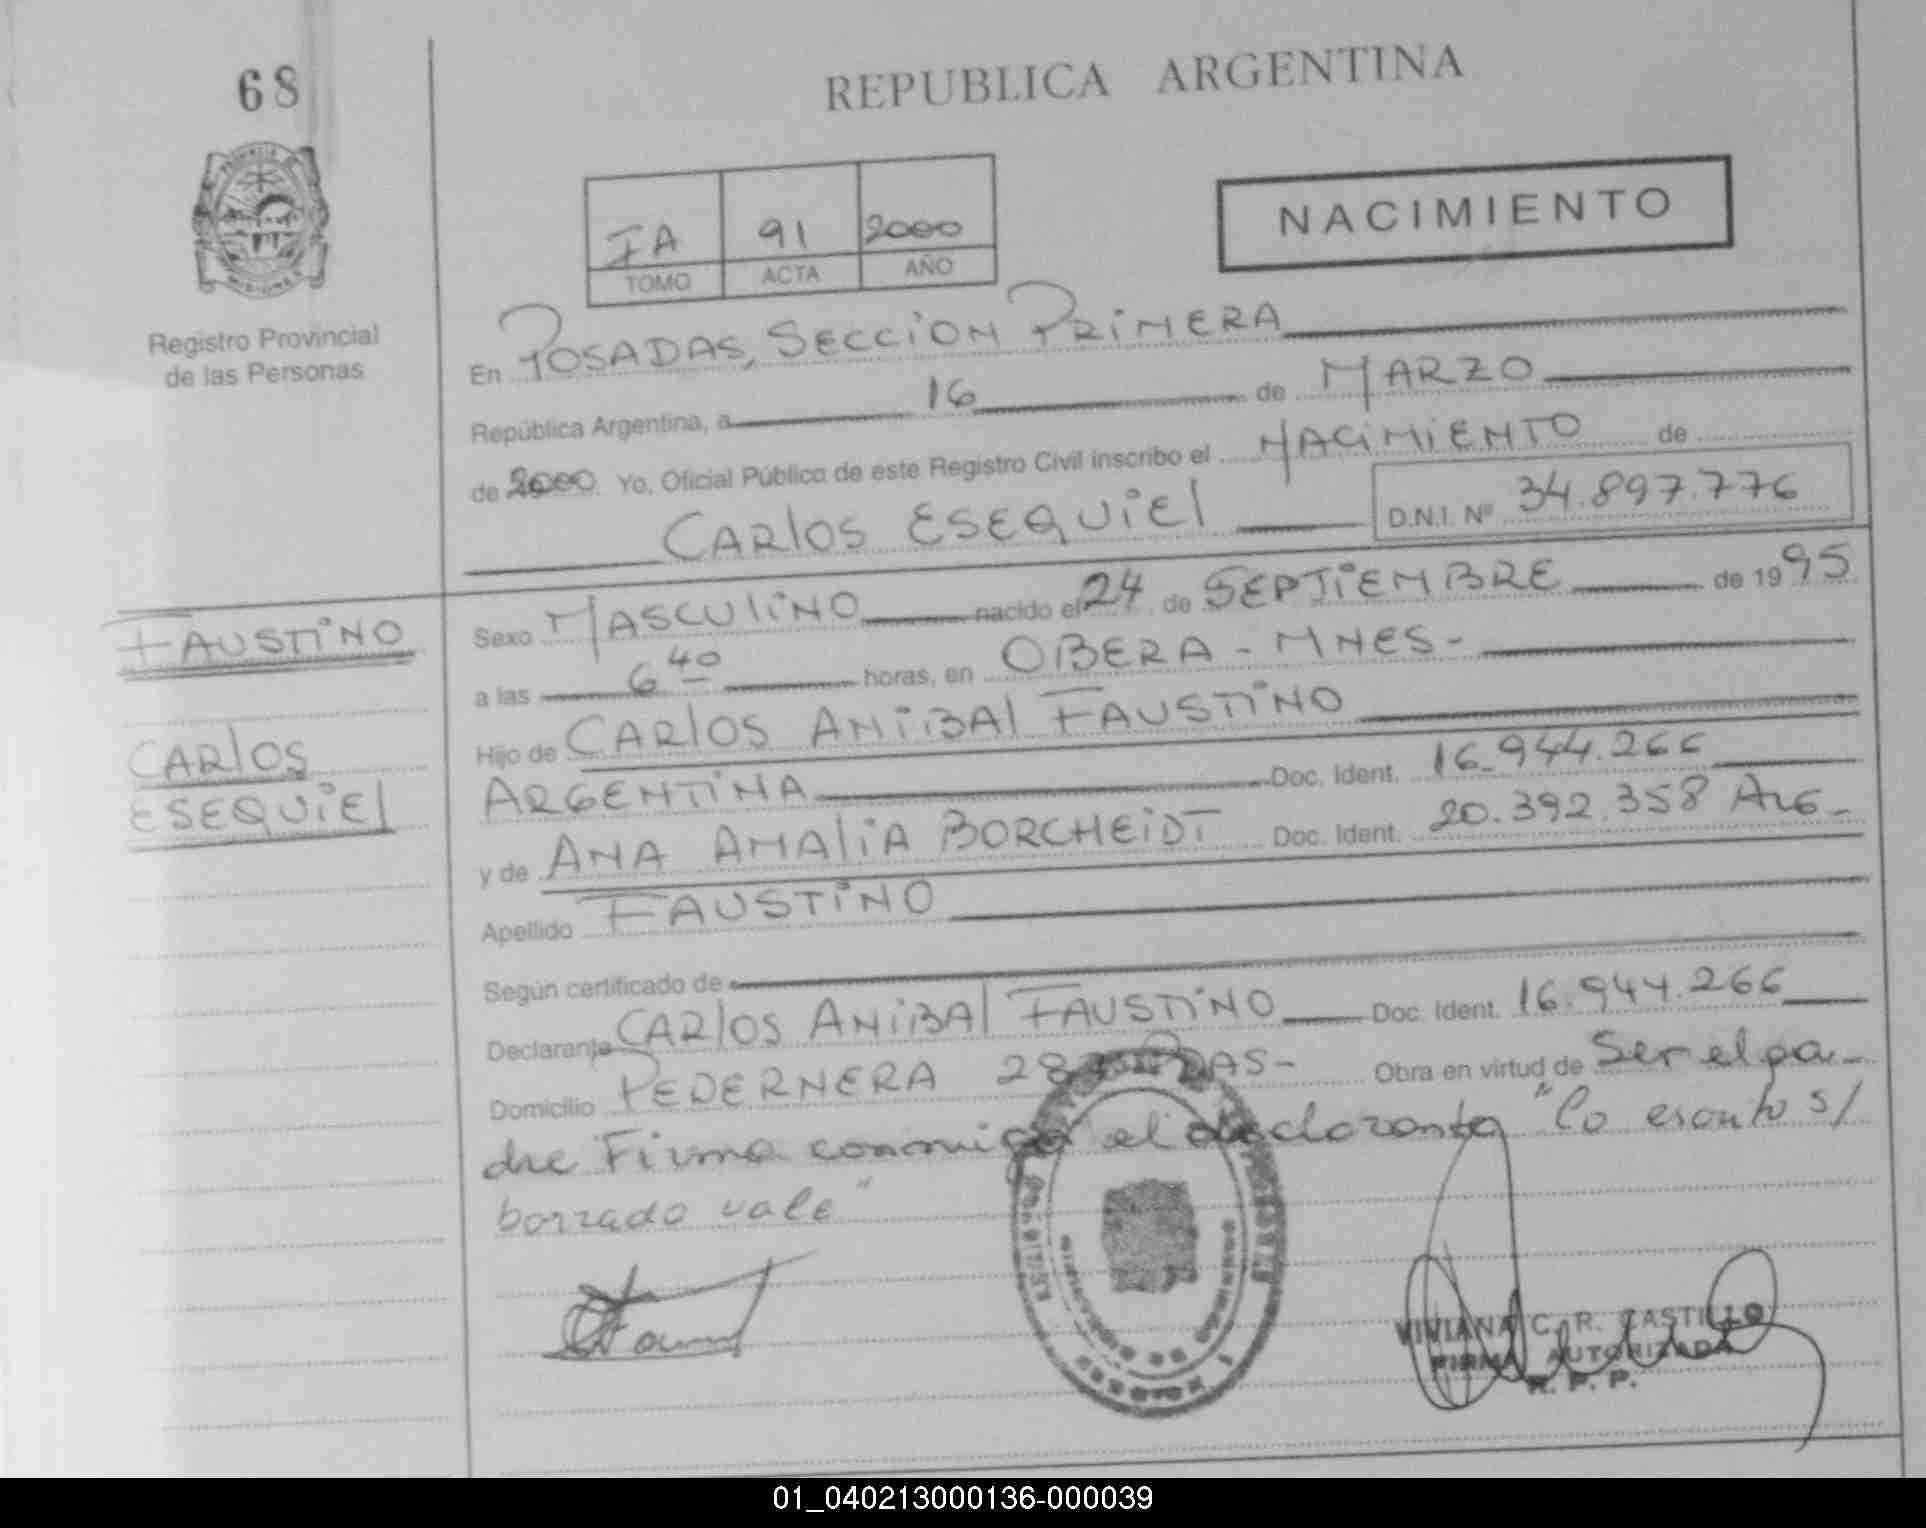 68
REPUBLICA ARGENTINA
PROVINCIA
MISIONES
IA 91 2000
TOMO ACTA AÑO
NACIMIENTO
Registro Provincial
de las Personas
En POSADAS, SECCION PRIMERA
República Argentina, a 16 de MARZO
de 2000. Yo, Oficial Público de este Registro Civil inscribo el NACIMIENTO de
CARlOS ESEQUiEl D.N.I. Nº 34.897.776
FAUSTiNO
CARlOS
ESEQUiEl
Sexo MASCUliNO nacido el 24 de SEPTiEMBRE de 1995
a las 6 40 horas, en OBERA - MNES-
Hijo de CARlOS ANiBAl FAUSTiNO
ARGENTiNA Doc. Ident. 16.944.266
y de ANA AMAliA BORCHEiDT Doc. Ident. 20.392.358 ARG-
Apellido FAUSTiNO
Según certificado de
Declarante CARlOS ANiBAl FAUSTiNO Doc. Ident. 16.944.266
Domicilio PEDERNERA PDAS- Obra en virtud de Ser el pa-
dre Firma conmigo el declarante "lo escrito s/
borrado vale"
VIVIANA C. R. CASTILLO
FIRMA AUTORIZADA
R. P. P.
01_040213000136-000039